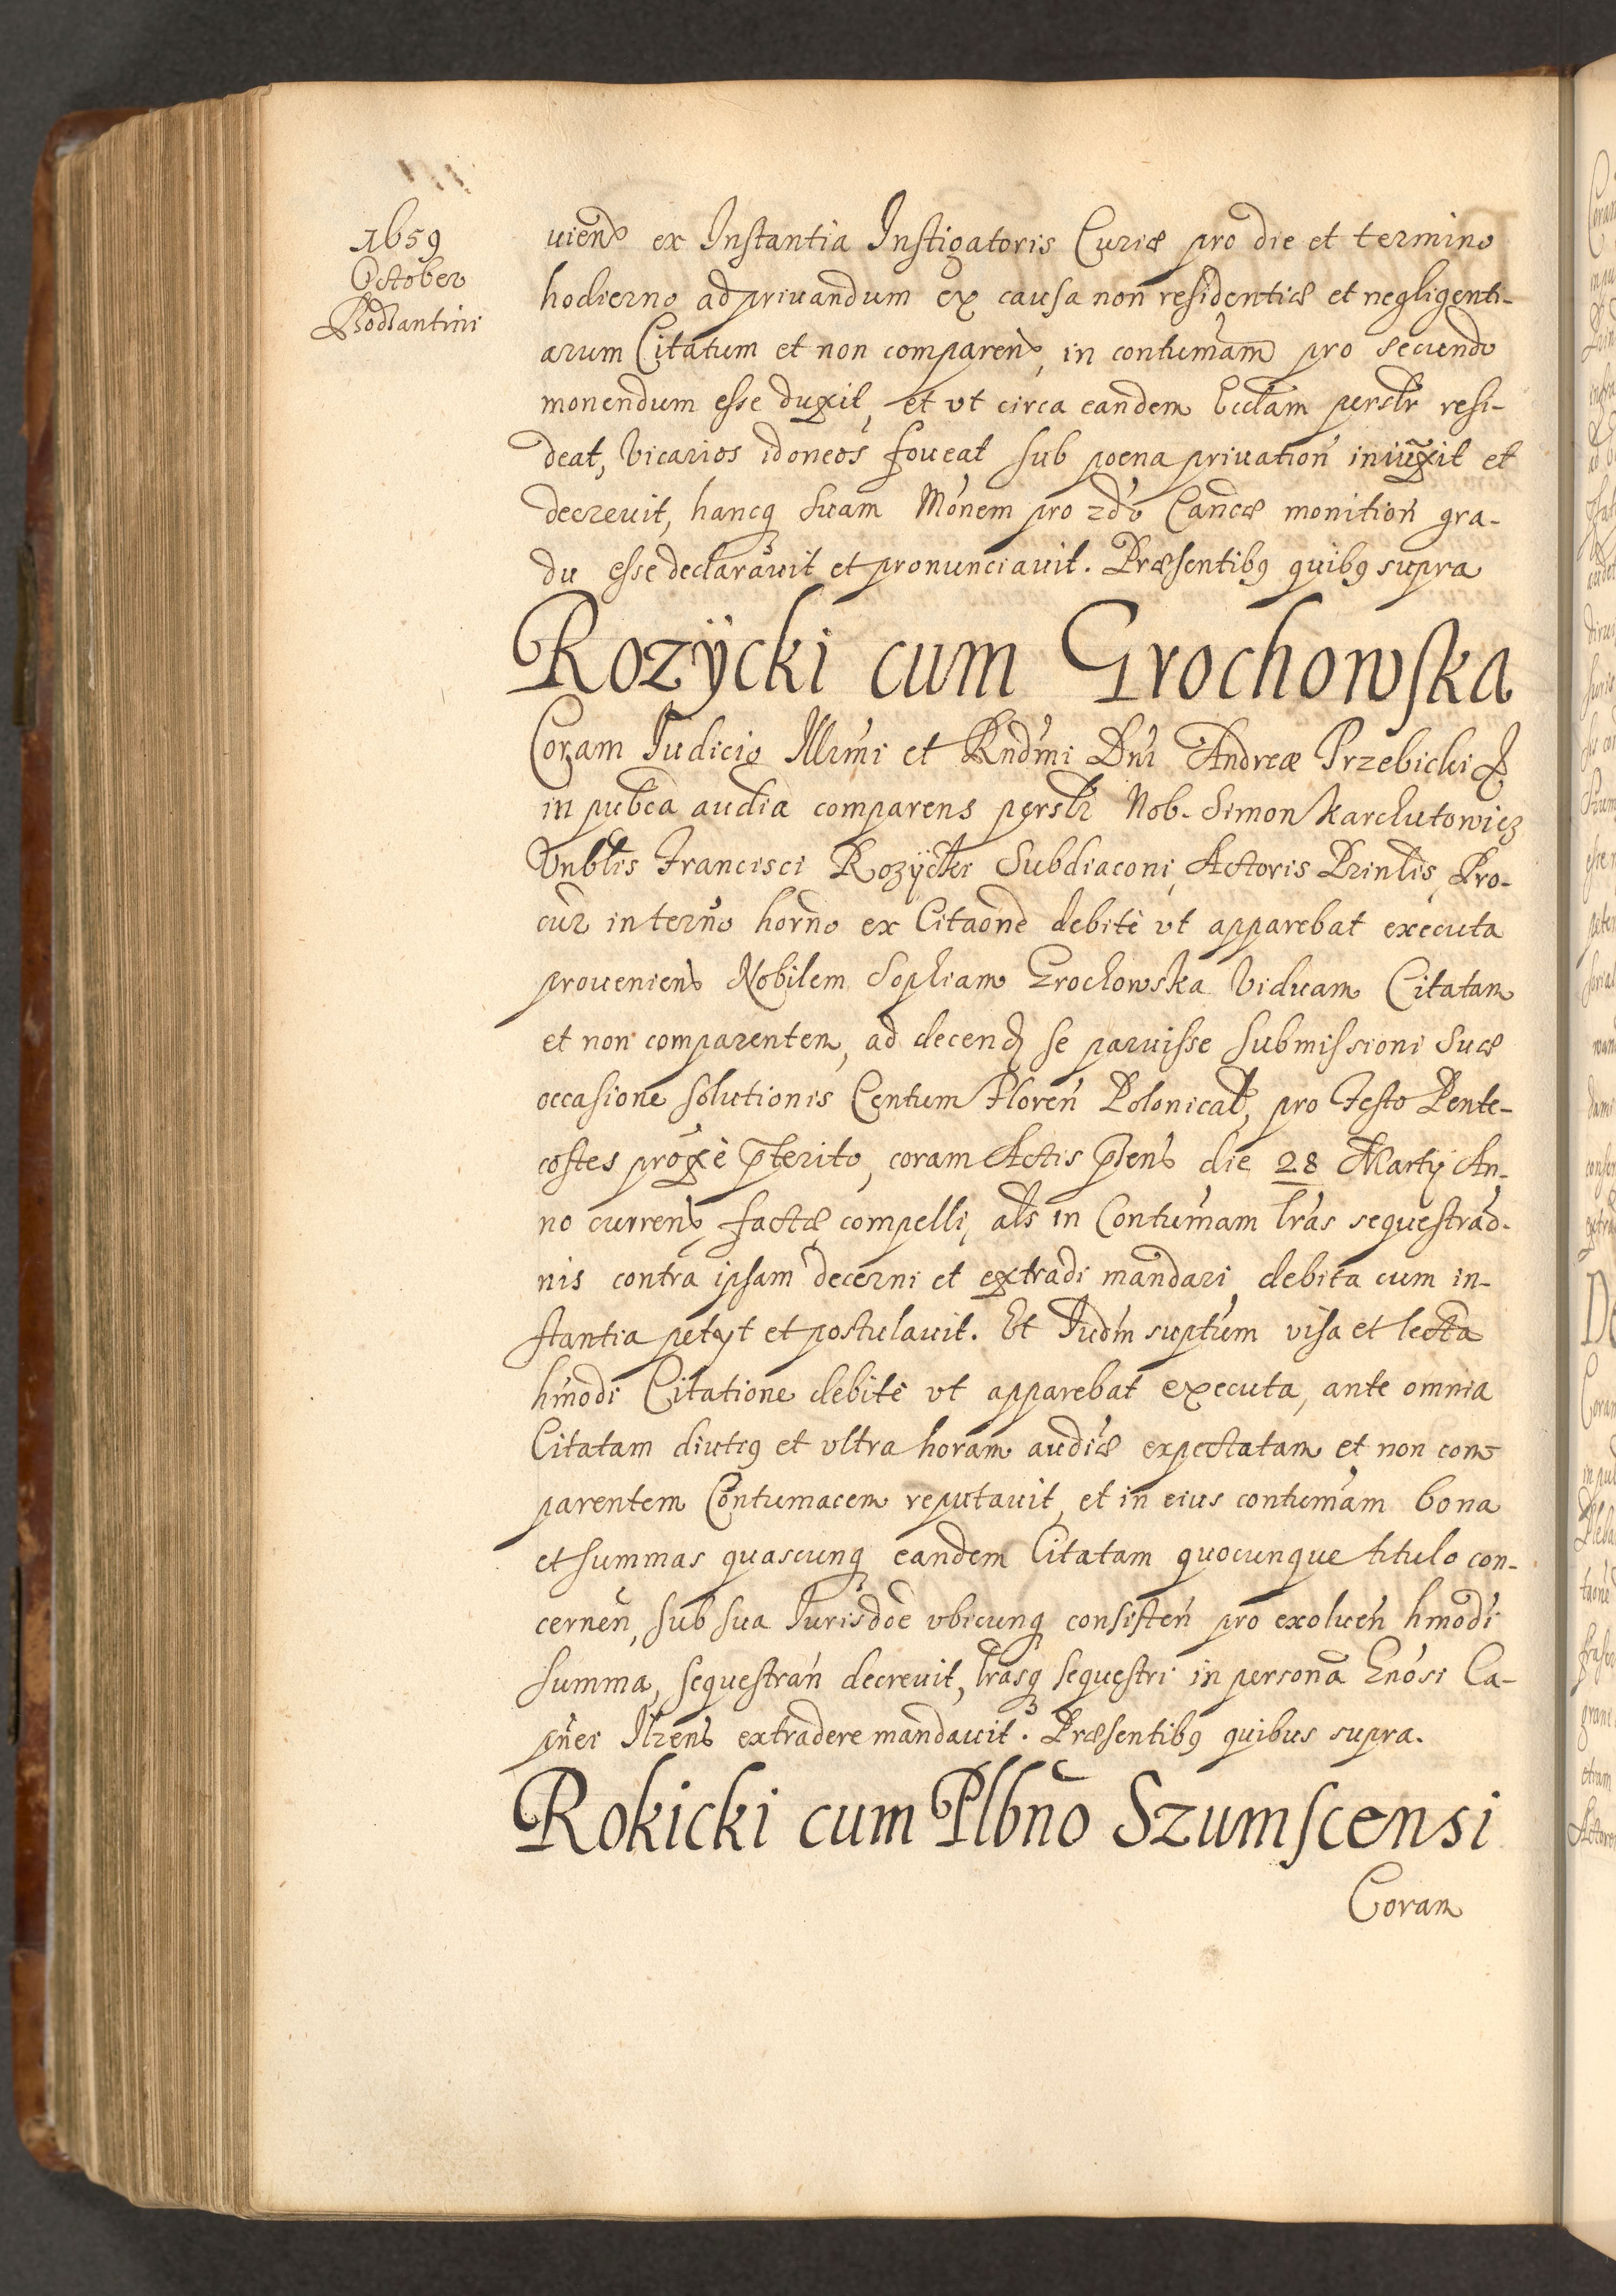 1659
October
Bodzantini
uiens ex Instantia Instigatoris Curiæ pro die et termino
hodierno ad priuandum ex causa non residentiæ et negligenti-
arum Citatum et non comparens, in contumam pro secundo
monendum esse duxit, et vt circa eandem Ecclam perslr resi-
deat, Vicarios idoneos foueat sub poena priuation iniuxit et
decreuit, hancq suam Monem pro 2do Cancæ monition gra-
du esse declarauit et pronunciauit. Præsentibq quibq supra
Rozÿcki cum Grochowska
Coram Iudicio Illrmi et Rndmi Dni Andreæ Trzebicki &
in pubca audia comparens perslr Nob. Simon Karchutowicz
Vnblis Francisci Rozÿcki Subdiaconi, Actoris Prinlis, Pro-
cur in terno horno ex Citaone debite vt apparebat executa
proueniens Nobilem Sophiam Grochowska Viduam Citatam
et non comparentem, ad decend se paruisse submissioni suæ
occasione solutionis Centum Floren Polonical, pro Festo Pente-
costes proxe pterito, coram Actis psens die 28 Martÿ An-
no currens factæ compelli, als in Contumam lras sequestrao-
nis contra ipsam decerni et extradi mandari, debita cum in-
stantia petÿt et postulauit. Et Iudm suptum visa et lecta
hmodi Citatione debite vt apparebat executa, ante omnia
Citatam diutiq et vltra horam audiæ expectatam et non com-
parentem Contumacem reputauit, et in eius contumam bona
et summas quascunq eandem Citatam quocunque titulo con-
cernen, sub sua Iurisdoe vbicunq consisten pro exoluen hmodi
summa, sequestran decreuit, lrasq sequestri in persona Gnosi Ca-
pnei Ilzens extradere mandauit. Præsentibq quibus supra.
Rokicki cum Plbno Szumscensi
Coram